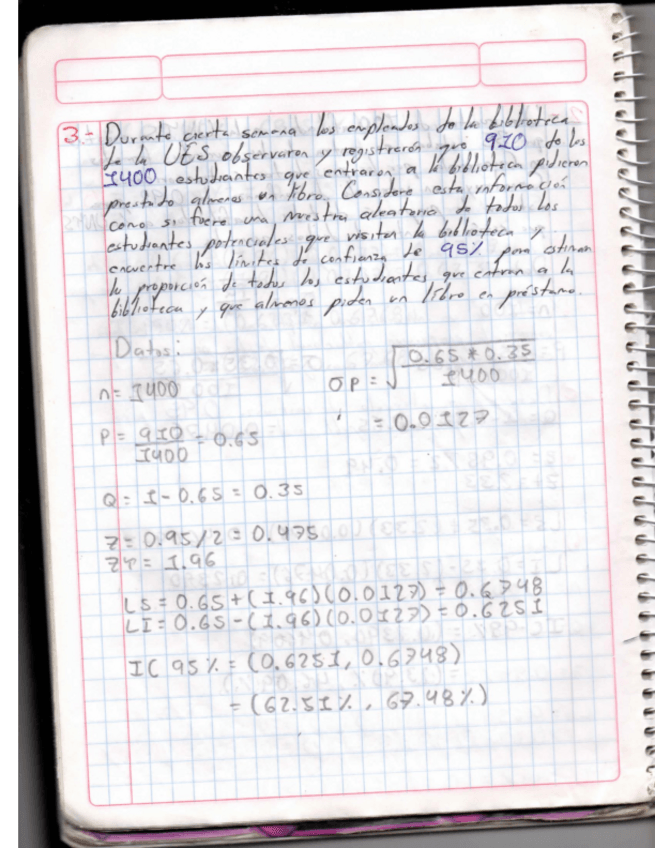 3- Durante cierta semana los empleados de la biblioteca
de la UES observaron y registraron que 910 de los
1400 estudiantes que entraron a la biblioteca pidieron
prestado almenos un libro. Considere esta información
como si fuera una muestra aleatoria de todos los
estudiantes potenciales que visitan la biblioteca y
encuentre los límites de confianza de 95% para estimar
la proporción de todos los estudiantes que entran a la
biblioteca y que almenos piden un libro en préstamo.
Datos:
n= 1400
σP = √ 0.65 * 0.35 / 1400
= 0.0127
P = 910 / 1400 = 0.65
Q = 1-0.65 = 0.35
Z = 0.95/2 = 0.475
= 1.96
LS = 0.65+(1.96)(0.0127) = 0.6748
LI = 0.65-(1.96)(0.0127) = 0.6251
IC 95% = (0.6251, 0.6748)
= (62.51%, 67.48%)